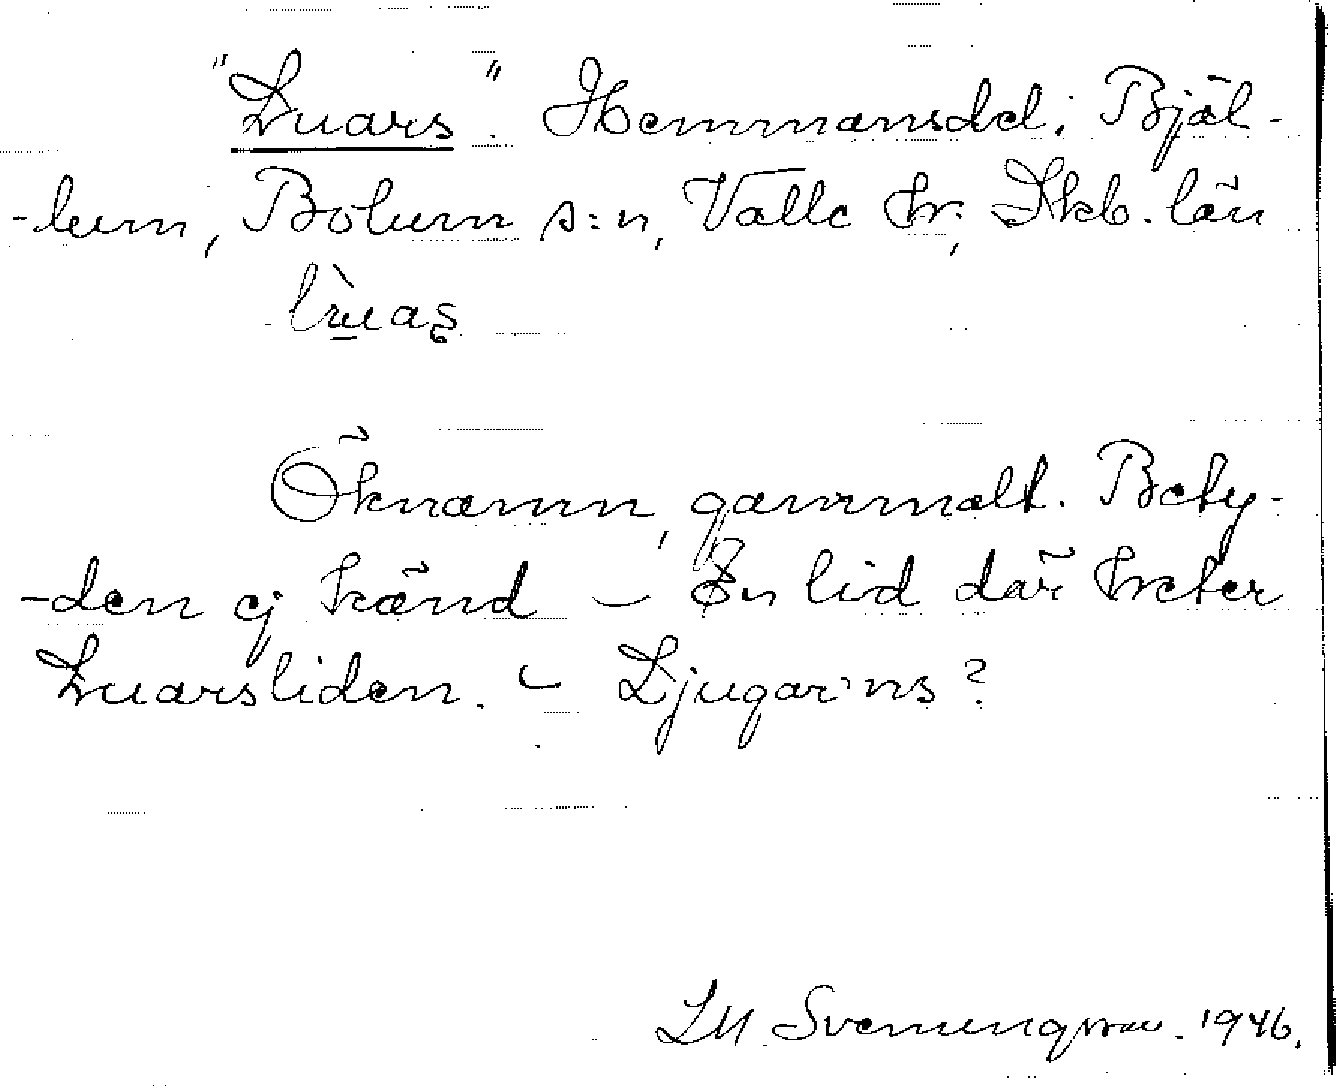 "Luars". Hemmansdel i Bjäl-
-lum, Bolum s:n, Valle hr, Skb. län
Öknamn, gammalt. Bety-
-den ej känd – En lid där heter
Luarsliden. – Ljugar'ns?
1946.